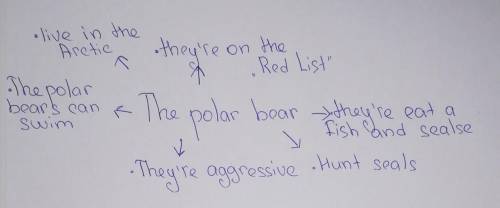 •live in the
Arctic
•they're on the
„Red List"
•The polar
bears can
swim
The polar bear
they're eat a
fish and sealse
•They're aggressive
•Hunt seals